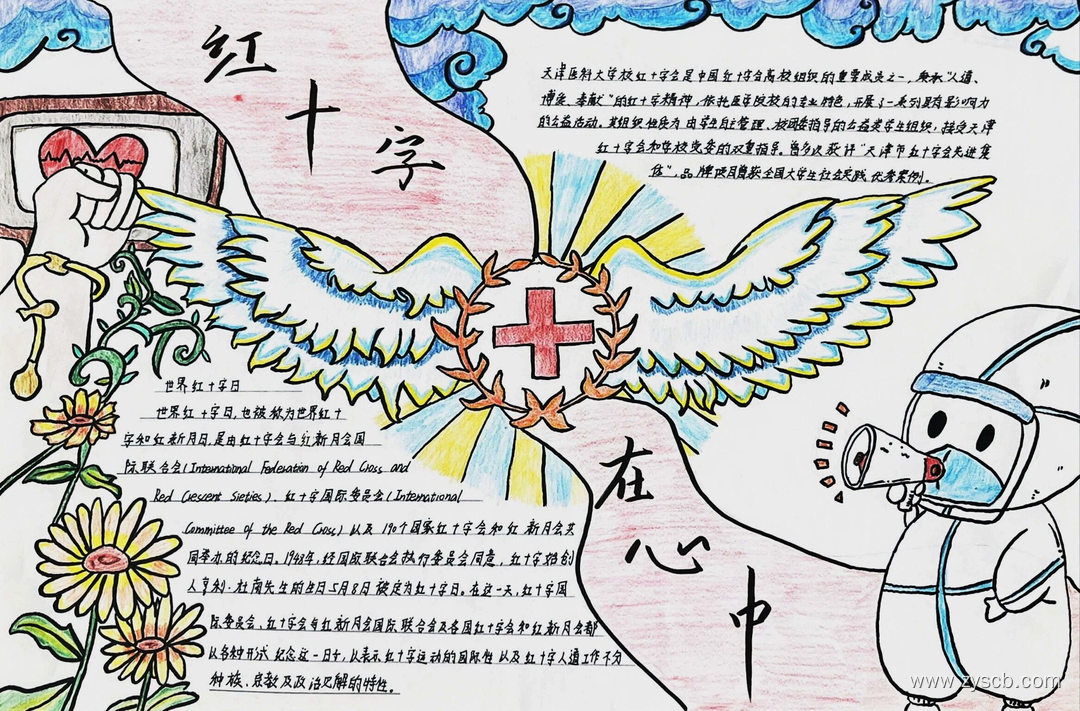 红十字
天津医科大学校红十字会是中国红十字会高校组织的重要成员之一，秉承"人道、
博爱、奉献"的红十字精神，依托医学院校的专业特色，开展了一系列具有影响力
的公益活动。其组织性质为由学生自主管理、校团委指导的公益类学生组织，接受天津
红十字会和学校党委的双重指导。曾多次获评"天津市红十字会先进集
体"，品牌项目曾获全国大学生社会实践优秀案例。
世界红十字日
世界红十字日，也被称为世界红十
字和红新月日，是由红十字会与红新月会国
际联合会(International Federation of Red Cross and
Red Crescent Sieties)、红十字国际委员会(International
Committee of the Red Cross)以及190个国家红十字会和红新月会共
同举办的纪念日。1948年，经国际联合会执行委员会同意，红十字始创
人亨利·杜南先生的生日5月8日被定为红十字日。在这一天，红十字国
际委员会、红十字会与红新月会国际联合会及各国红十字会和红新月会都
以各种形式纪念这一日子，以表示红十字运动的国际性以及红十字人道工作不分
种族、宗教及政治见解的特性。
在心中
www.zyscb.com